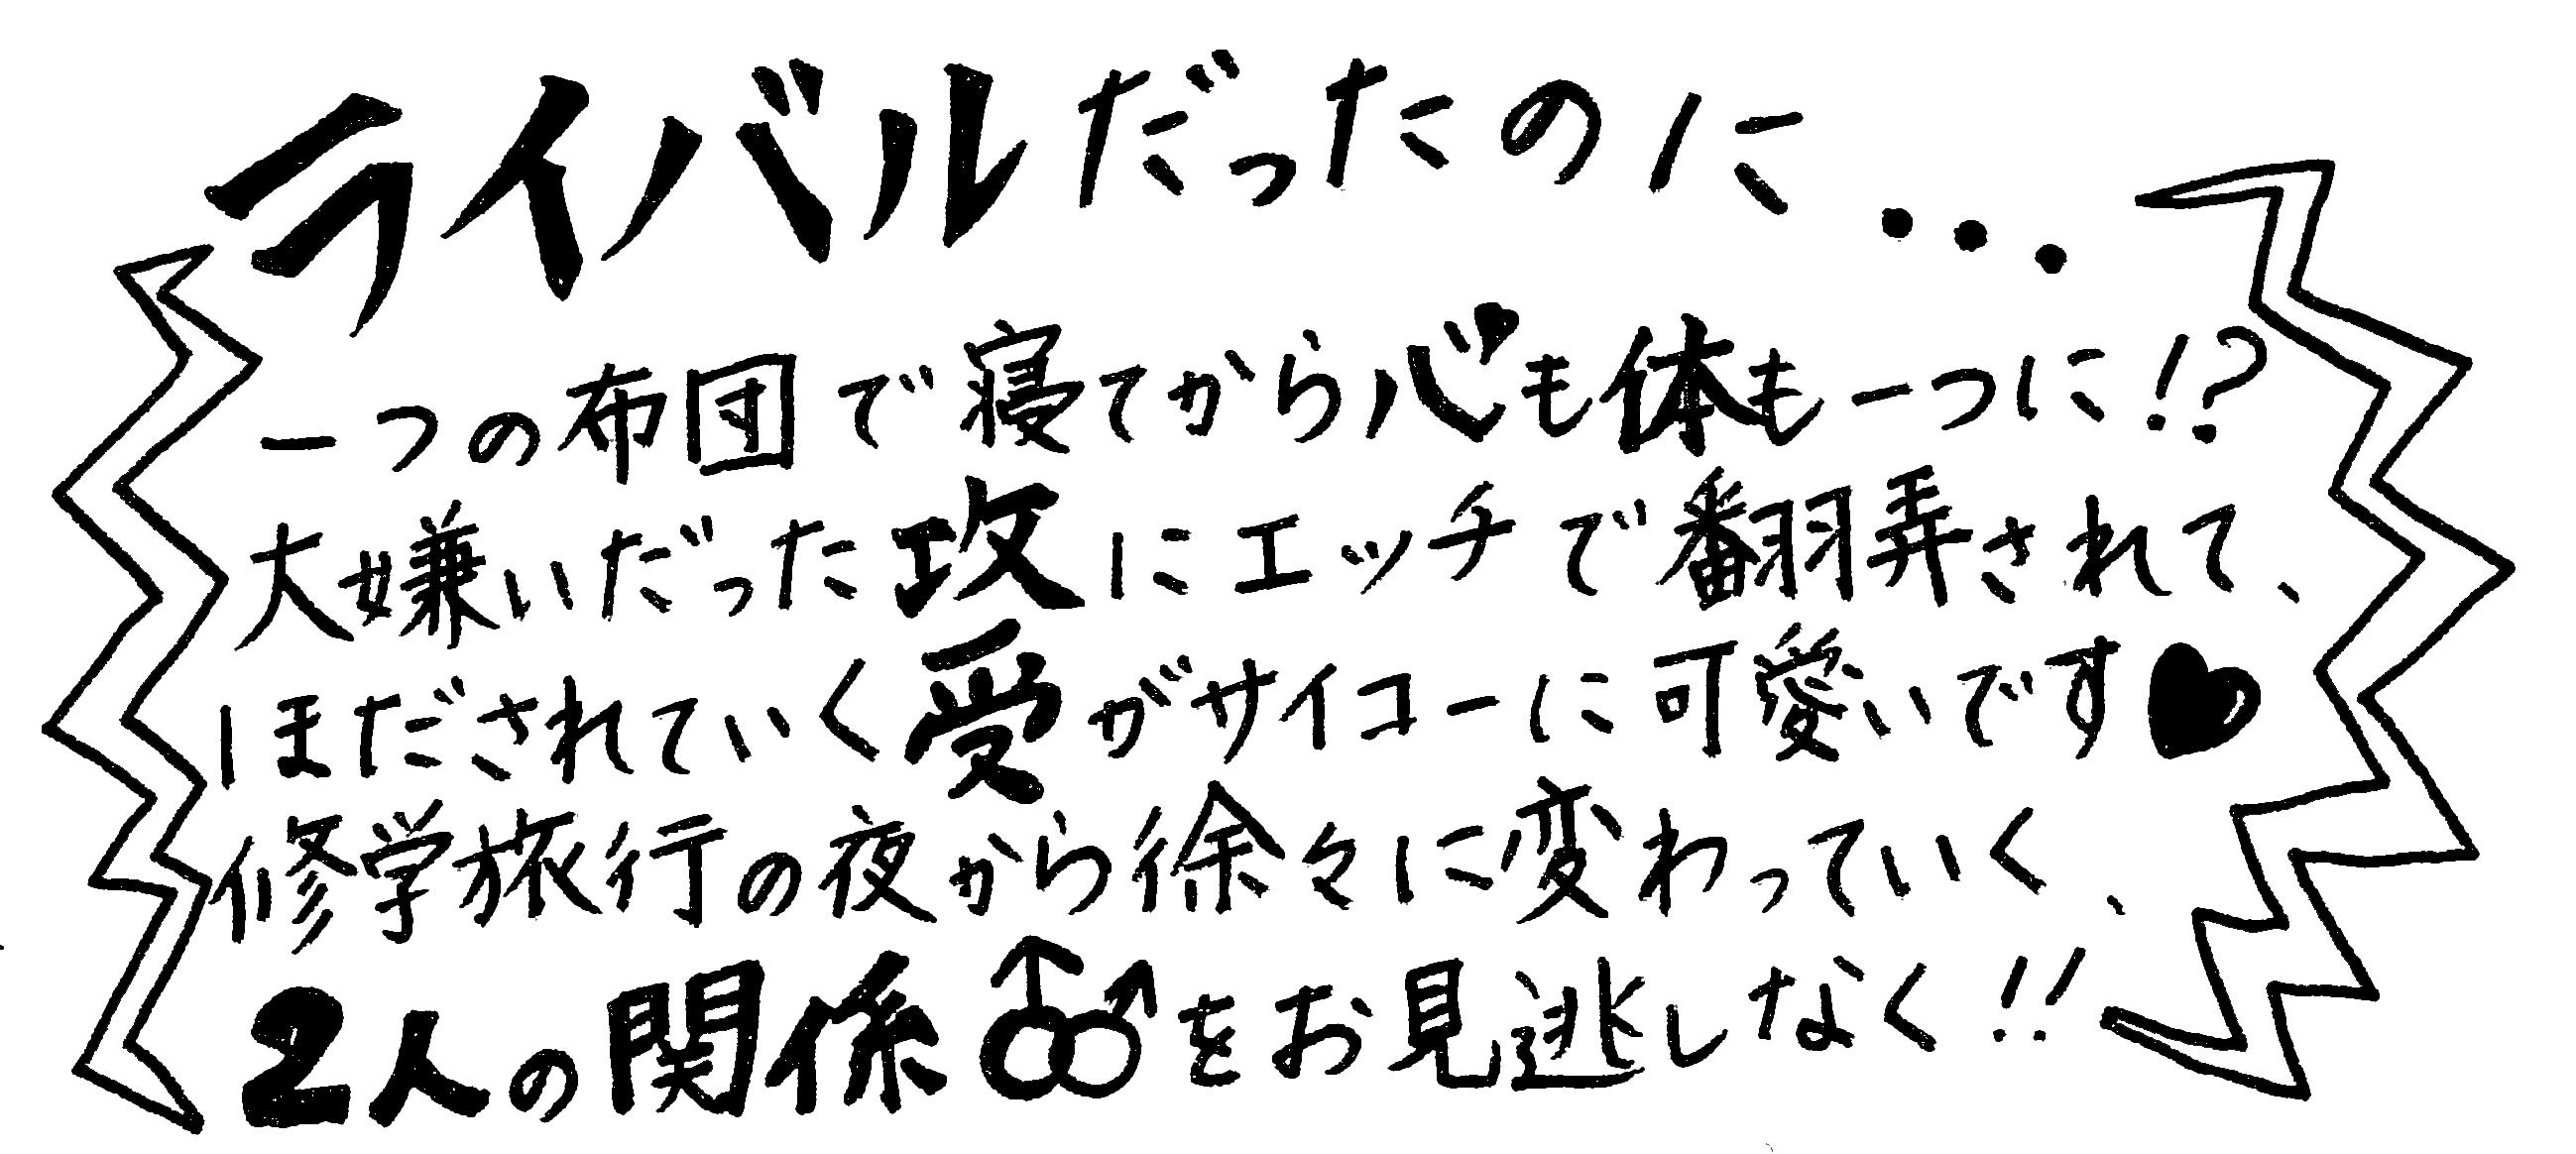 ライバルだったのに...
一つの布団で寝てから心も体も一つに!?
大嫌いだった攻にエッチで翻弄されて、
ほだされていく受がサイコーに可愛いです♥
修学旅行の夜から徐々に変わっていく、
2人の関係⚣をお見逃しなく!!